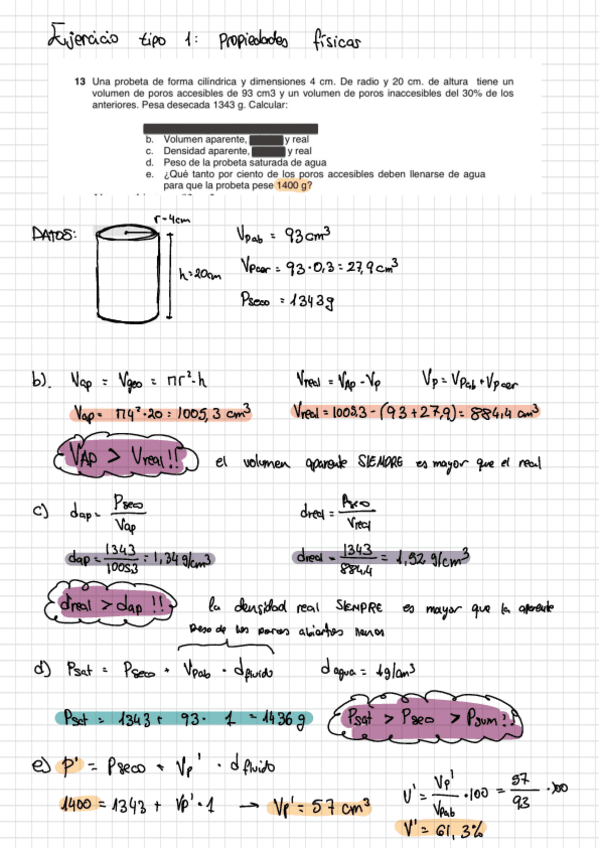 Ejercicio tipo 1: propiedades físicas
13 Una probeta de forma cilíndrica y dimensiones 4 cm. De radio y 20 cm. de altura tiene un
volumen de poros accesibles de 93 cm3 y un volumen de poros inaccesibles del 30% de los
anteriores. Pesa desecada 1343 g. Calcular:
b. Volumen aparente, y real
c. Densidad aparente, y real
d. Peso de la probeta saturada de agua
e. ¿Qué tanto por ciento de los poros accesibles deben llenarse de agua
para que la probeta pese 1400 g?
DATOS:
r=4cm
h=20cm
Vpab = 93 cm³
Vpcer = 93·0,3 = 27,9 cm³
Pseco = 1343 g
b). Vap = Vgeo = πr²·h
Vreal = Vap - Vp Vp = Vpab + Vpcer
Vap = π4²·20 = 1005,3 cm³
Vreal = 1005,3 - (93 + 27,9) = 884,4 cm³
VAP > Vreal!! el volumen aparente SIEMPRE es mayor que el real
c) dap = Pseco / Vap
dreal = Pseco / Vreal
dap = 1343 / 1005,3 = 1,34 g/cm³
dreal = 1343 / 884,4 = 1,52 g/cm³
dreal > dap !! la densidad real SIEMPRE es mayor que la aparente
peso de los poros abiertos llenos
d) Psat = Pseco + Vpab · dfluido dagua = 1g/cm³
Psat = 1343 + 93 · 1 = 1436 g
Psat > Pseco > Psum!!
e) P' = Pseco + Vp' · dfluido
1400 = 1343 + Vp' · 1 → Vp' = 57 cm³
V' = Vp' / Vpab · 100 = 57 / 93 · 100
V' = 61,3%